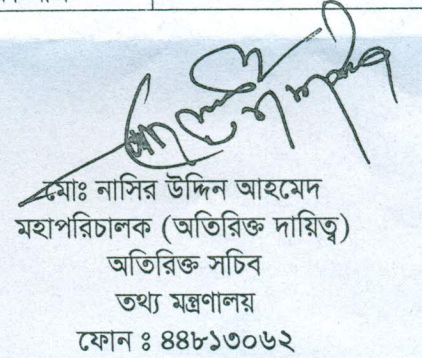 মোঃ নাসির উদ্দিন আহমেদ
মহাপরিচালক (অতিরিক্ত দায়িত্ব)
অতিরিক্ত সচিব
তথ্য মন্ত্রণালয়
ফোন ঃ ৪৪৮১৩০৬২